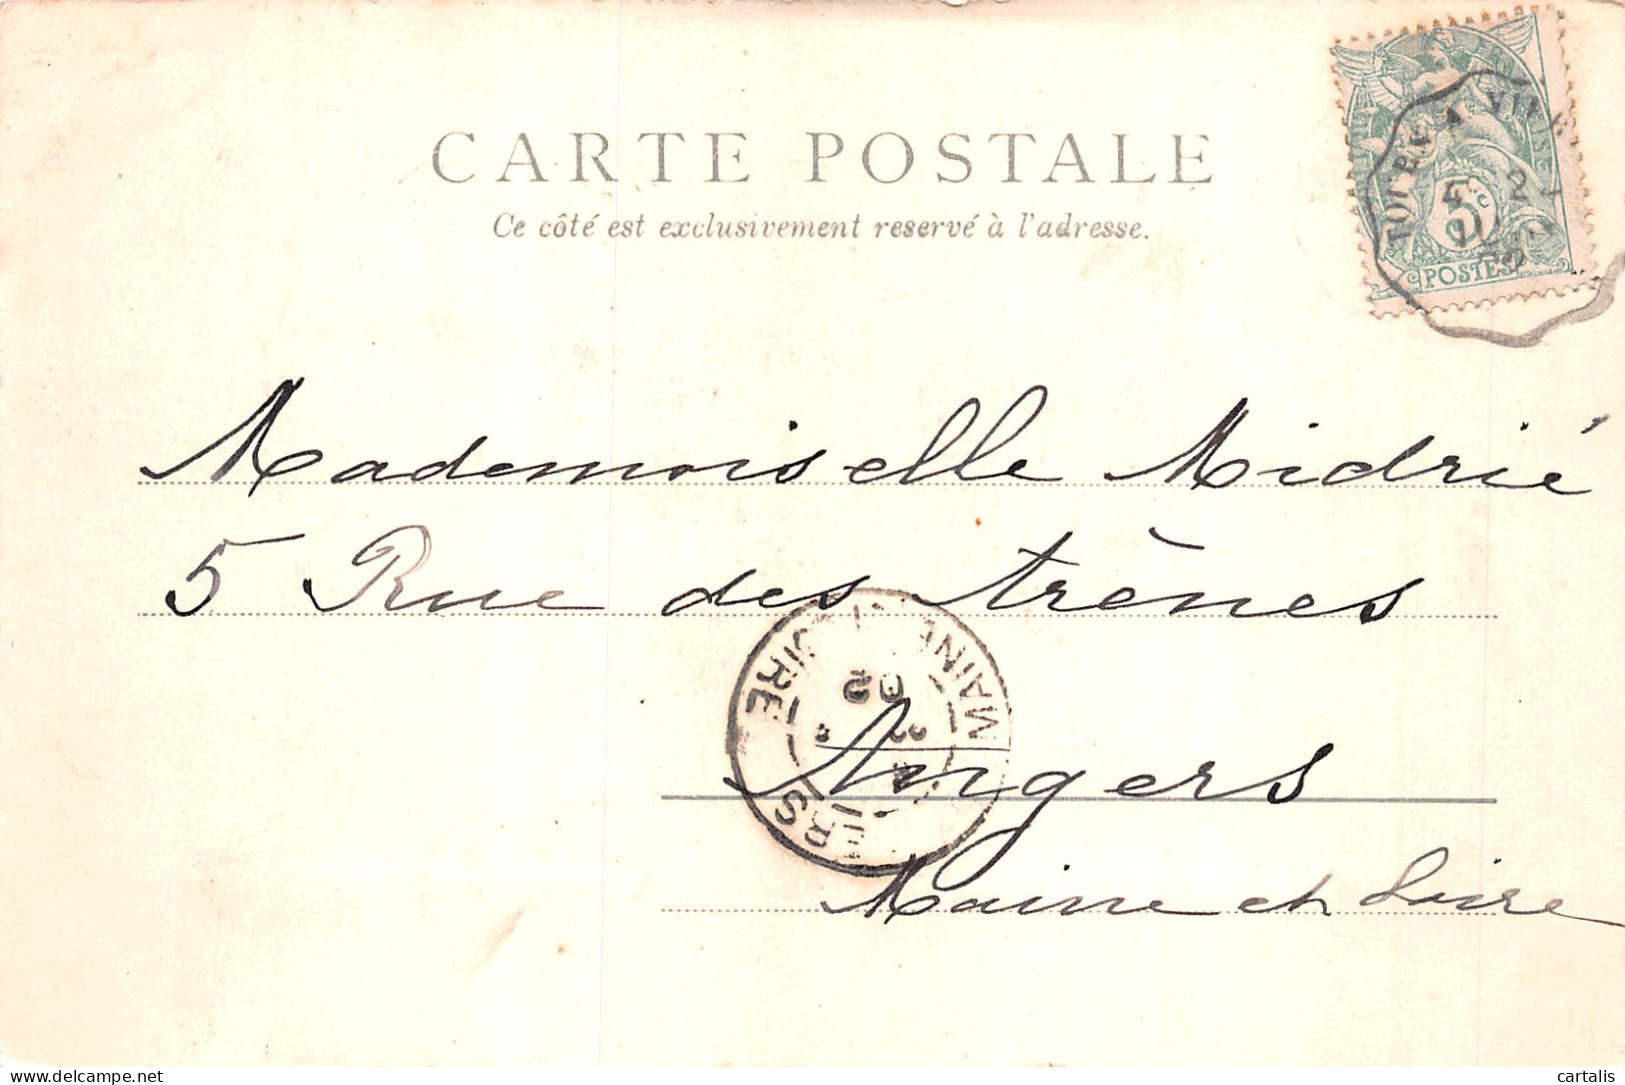 CARTE POSTALE
Ce côté est exclusivement reservé à l'adresse.
5c
POSTES
Mademoiselle Midrié
5 Rue des trênes
MAINE
LOIRE
02
Angers
Maine et Loire
delcampe.net
cartalis